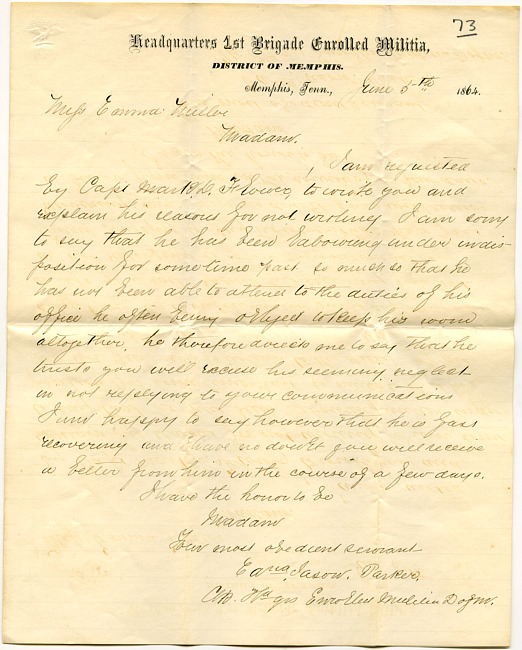 73
Headquarters 1st Brigade Enrolled Militia,
DISTRICT OF MEMPHIS.
Memphis, Tenn., June 5th 1864.
Miss Emma
Madam.
I am requested
by Capt Mark to write you and
explain his reasons for not writing I am sorry
to say that he has been labouring under indis-
position for some time past so much so that he
has not been able to attend to the duties of his
office he often being obliged to keep his room
altogether. he therefore directs me to say that he
trusts you will excuse his seeming neglect
in not replying to your communications
I am happy to say however that he is fast
recovering and I have no doubt you will receive
a letter from him in the course of a few days.
I have the honor to be
Madam
Your most obedient servant
Parker.
Clk. Hd qrs Enrolled Militia D of M.